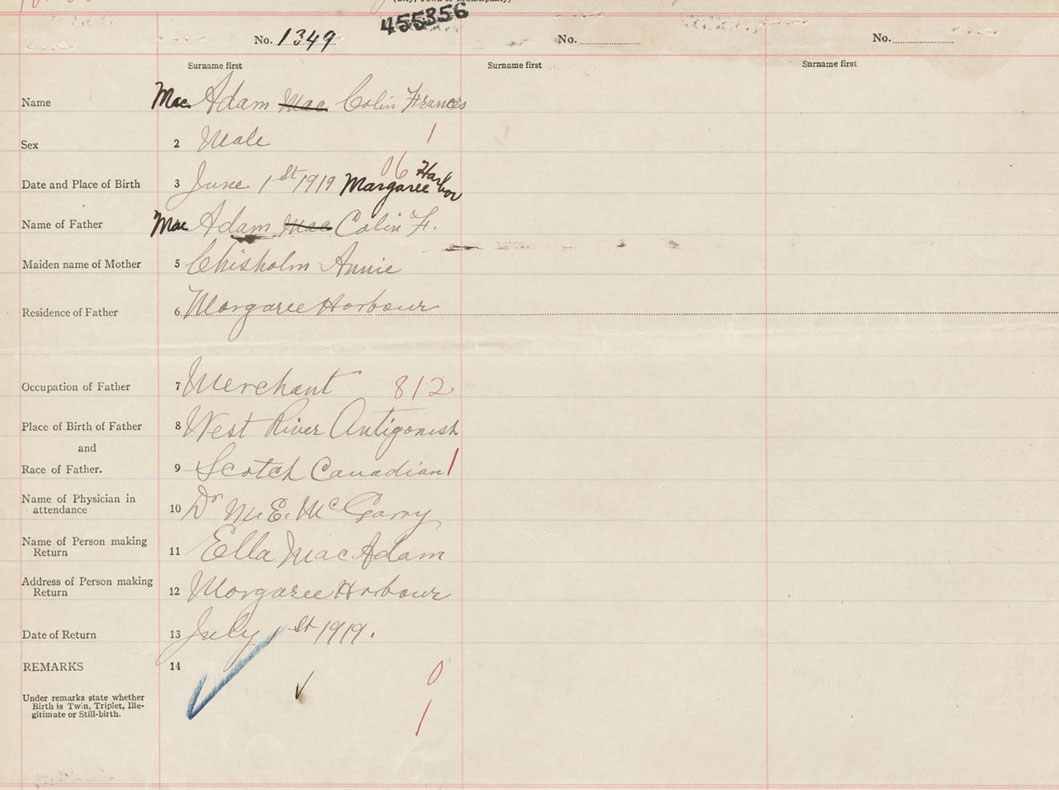 455356
No. 1349 No. No.
Surname first Surname first Surname first
Name Mac Adam Mac Colin Francis
1
Sex 2 Male
06
Date and Place of Birth 3 June 1st 1919 Margaree Harbor
Name of Father Mac Adam Mac Colin F.
Maiden name of Mother 5 Chisholm Annie
Residence of Father 6 Margaree Harbour
Occupation of Father 7 Merchant 812
Place of Birth of Father 8 West River Antigonish
and
Race of Father. 9 Scotch Canadian 1
Name of Physician in
attendance 10 Dr M. E. Mc Garry
Name of Person making
Return 11 Ella MacAdam
Address of Person making
Return 12 Margaree Harbour
Date of Return 13 July 1st 1919.
REMARKS 14
0
Under remarks state whether
Birth is Twin, Triplet, Ille-
gitimate or Still-birth.
1